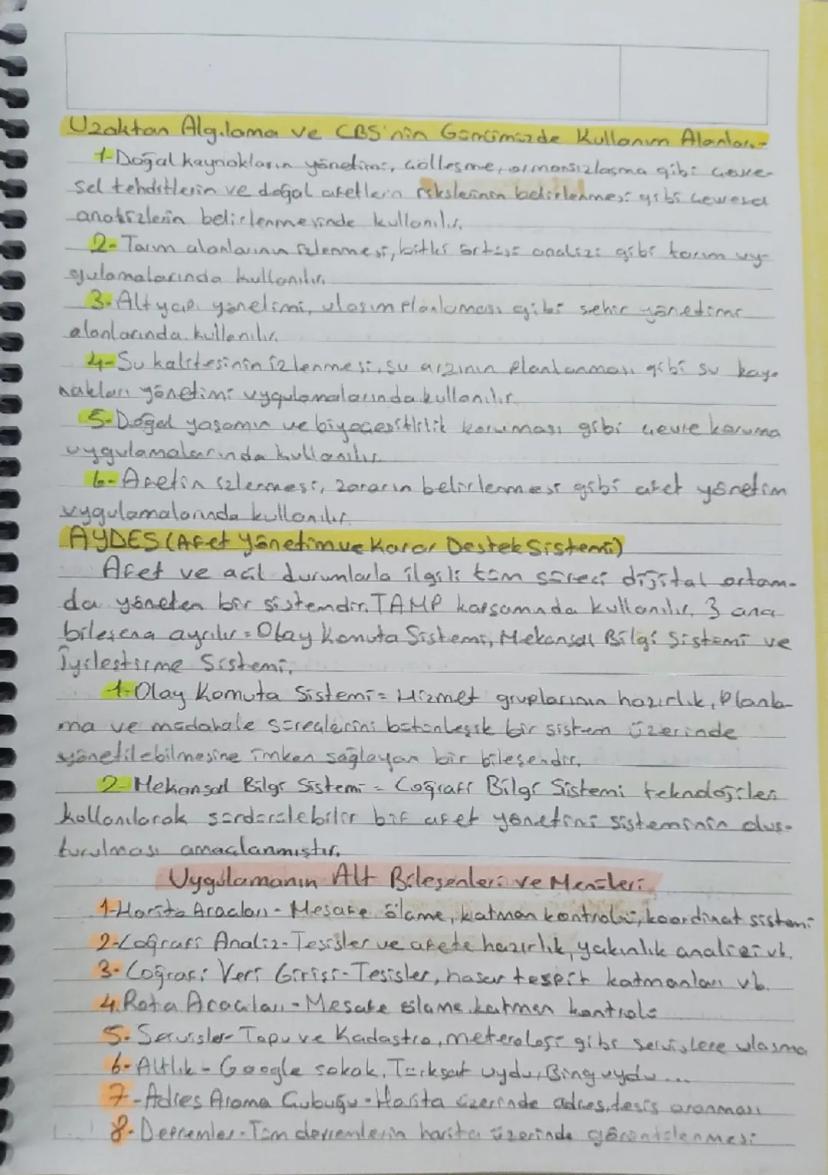 Uzaktan Algılama ve CBS'nin Günümüzde Kullanım Alanları-
1-Doğal kaynakların yönetimi, çölleşme, ormansızlaşma gibi çevre-
sel tehditlerin ve doğal afetlerin risklerinin belirlenmesi gibi çevresel
analizlerin belirlenmesinde kullanılır.
2-Tarım alanlarının izlenmesi, bitki örtüsü analizi gibi tarım uy-
gulamalarında kullanılır.
3-Altyapı yönetimi, ulaşım planlaması gibi şehir yönetimi
alanlarında kullanılır.
4-Su kalitesinin izlenmesi, su arzının planlanması gibi su kay-
nakları yönetimi uygulamalarında kullanılır.
5-Doğal yaşamın ve biyoçeşitlilik koruması gibi çevre koruma
uygulamalarında kullanılır.
6-Afetin izlenmesi, zararın belirlenmesi gibi afet yönetim
uygulamalarında kullanılır.
AYDES (Afet Yönetim ve Karar Destek Sistemi)
Afet ve acil durumlarla ilgili tüm süreci dijital ortam-
da yöneten bir sistemdir. TAMP kapsamında kullanılır. 3 ana
bileşene ayrılır = Olay Komuta Sistemi, Mekansal Bilgi Sistemi ve
İyileştirme Sistemi.
1-Olay Komuta Sistemi = Hizmet gruplarının hazırlık, planla-
ma ve müdahale süreçlerini bütünleşik bir sistem üzerinde
yönetilebilmesine imkan sağlayan bir bileşendir.
2-Mekansal Bilgi Sistemi = Coğrafi Bilgi Sistemi teknolojileri
kullanılarak sürdürülebilir bir afet yönetimi sisteminin oluş-
turulması amaçlanmıştır.
Uygulamanın Alt Bileşenleri ve Menüleri
1-Harita Araçları - Mesafe ölçme, katman kontrolü, koordinat sistemi
2-Coğrafi Analiz - Tesisler ve afete hazırlık, yakınlık analizi vb.
3-Coğrafi Veri Girişi - Tesisler, hasar tespit katmanları vb.
4.Rota Araçları - Mesafe ölçme, katman kontrolü
5-Servisler - Tapu ve Kadastro, meteroloji gibi servislere ulaşma
6-Altlık - Google sokak, Türksat uydu, Bing uydu...
7-Adres Arama Çubuğu - Harita üzerinde adres, tesis aranması
8-Depremler - Tüm depremlerin harita üzerinde görüntülenmesi